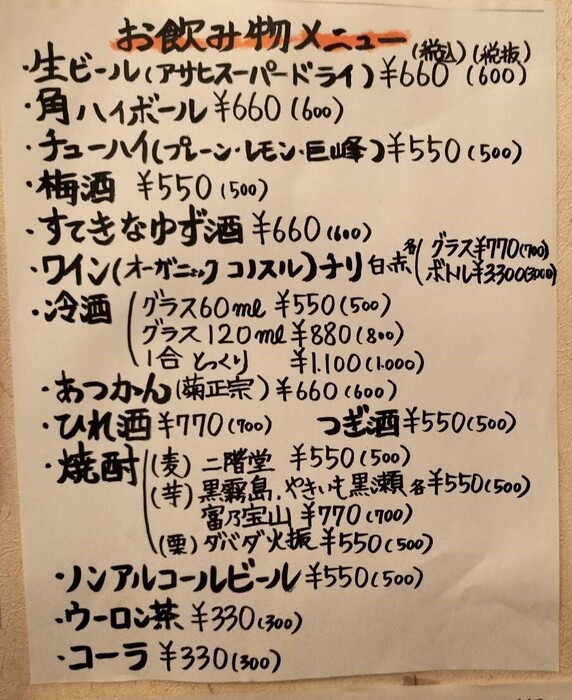 お飲み物メニュー(税込)(税抜)
・生ビール(アサヒスーパードライ)¥660(600)
・角ハイボール¥660(600)
・チューハイ(プレーン・レモン・巨峰)¥550(500)
・梅酒 ¥550(500)
・すてきなゆず酒¥660(600)
・ワイン(オーガニック コノスル)チリ白・赤 各(グラス¥770(700)
ボトル¥3300(3000)
・冷酒(グラス60ml ¥550(500)
グラス120ml ¥880(800)
1合 とっくり ¥1.100(1.000)
・あつかん(菊正宗)¥660(600)
・ひれ酒¥770(700) つぎ酒¥550(500)
・焼酎(麦)二階堂 ¥550(500)
(芋)黒霧島、やきいも黒瀬 各¥550(500)
富乃宝山 ¥770(700)
(栗)ダバダ火振 ¥550(500)
・ノンアルコールビール¥550(500)
・ウーロン茶 ¥330(300)
・コーラ ¥330(300)